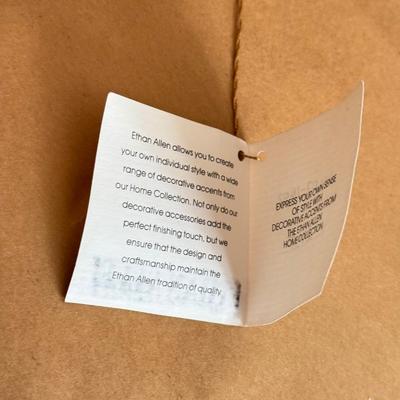 Ethan Allen allows you to create
your own individual style with a wide
range of decorative accents from
our Home Collection. Not only do our
decorative accessories add the
perfect finishing touch, but we
ensure that the design and
craftsmanship maintain the
Ethan Allen tradition of quality.
EXPRESS YOUR OWN SENSE
OF STYLE WITH
DECORATIVE ACCENTS FROM
THE ETHAN ALLEN
HOME COLLECTION.